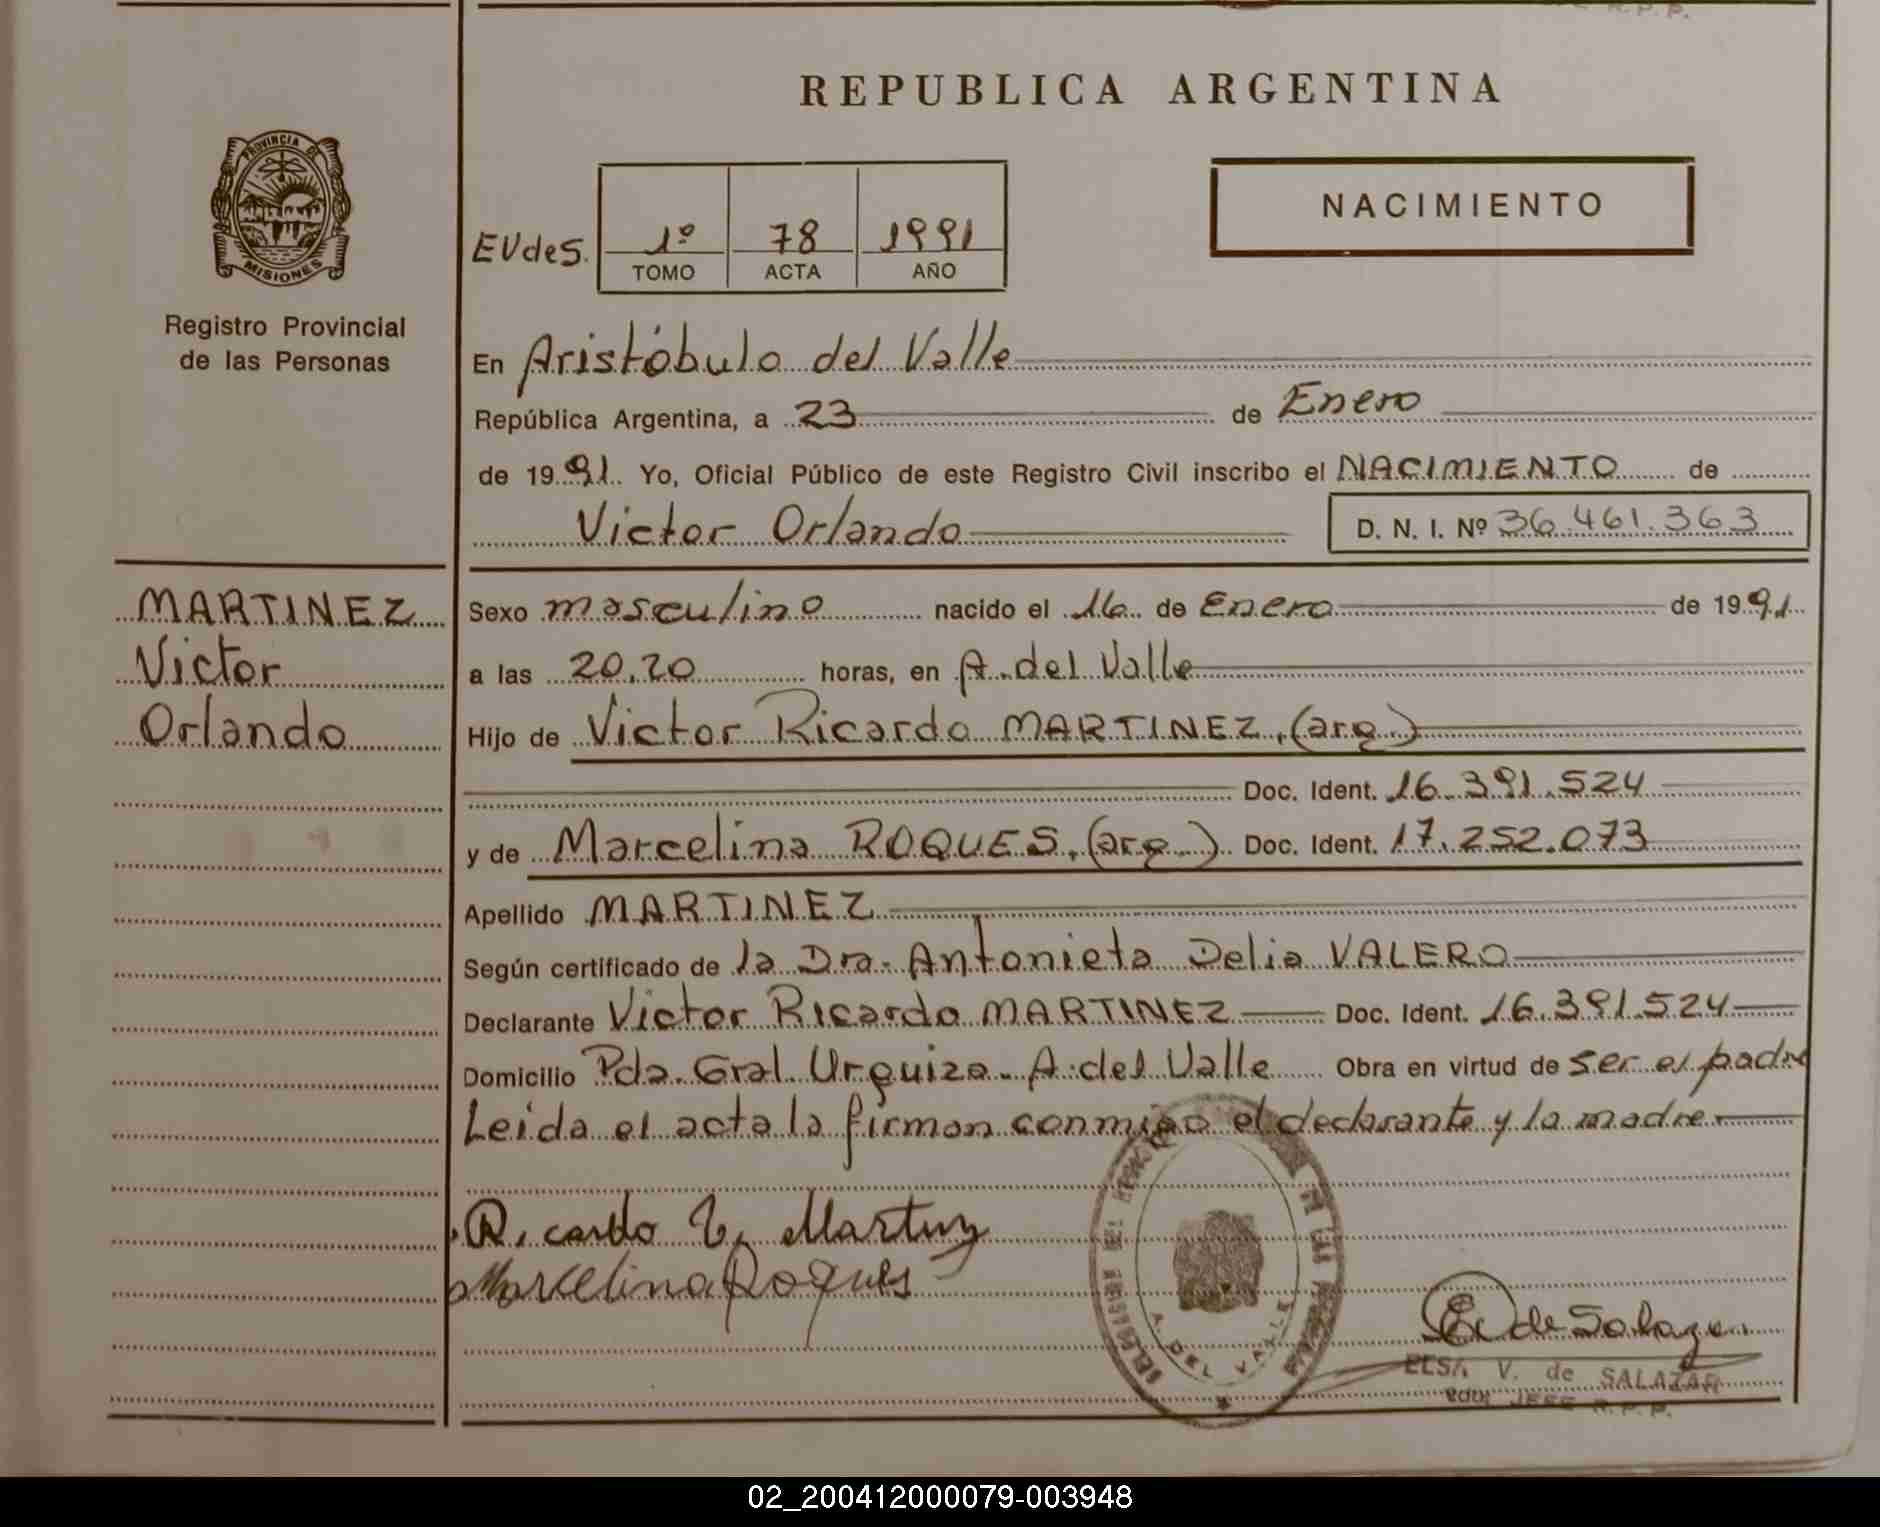 REPUBLICA ARGENTINA
PROVINCIA DE
MISIONES
Registro Provincial
de las Personas
NACIMIENTO
EVdeS. 1º 78 1991
TOMO ACTA AÑO
En Aristóbulo del Valle
República Argentina, a 23 de Enero
de 1991 Yo, Oficial Público de este Registro Civil inscribo el NACIMIENTO de
Victor Orlando D. N. I. Nº 36.461.363
MARTINEZ
Victor
Orlando
Sexo masculino nacido el 16 de Enero de 1991
a las 20,20 horas, en A. del Valle
Hijo de Victor Ricardo MARTINEZ, (arg.)
Doc. Ident. 16.391.524
y de Marcelina ROQUES, (arg.) Doc. Ident. 17.252.073
Apellido MARTINEZ
Según certificado de la Dra. Antonieta Delia VALERO
Declarante Victor Ricardo MARTINEZ Doc. Ident. 16.391.524
Domicilio Pda. Gral. Urquiza - A. del Valle Obra en virtud de ser el padre
Leida el acta la firman conmigo el declarante y la madre.
Marcelina Roques
A. DEL VALLE
E. de Salazar
ELSA V. de SALAZAR
JEFE R.P.P.
02_200412000079-003948